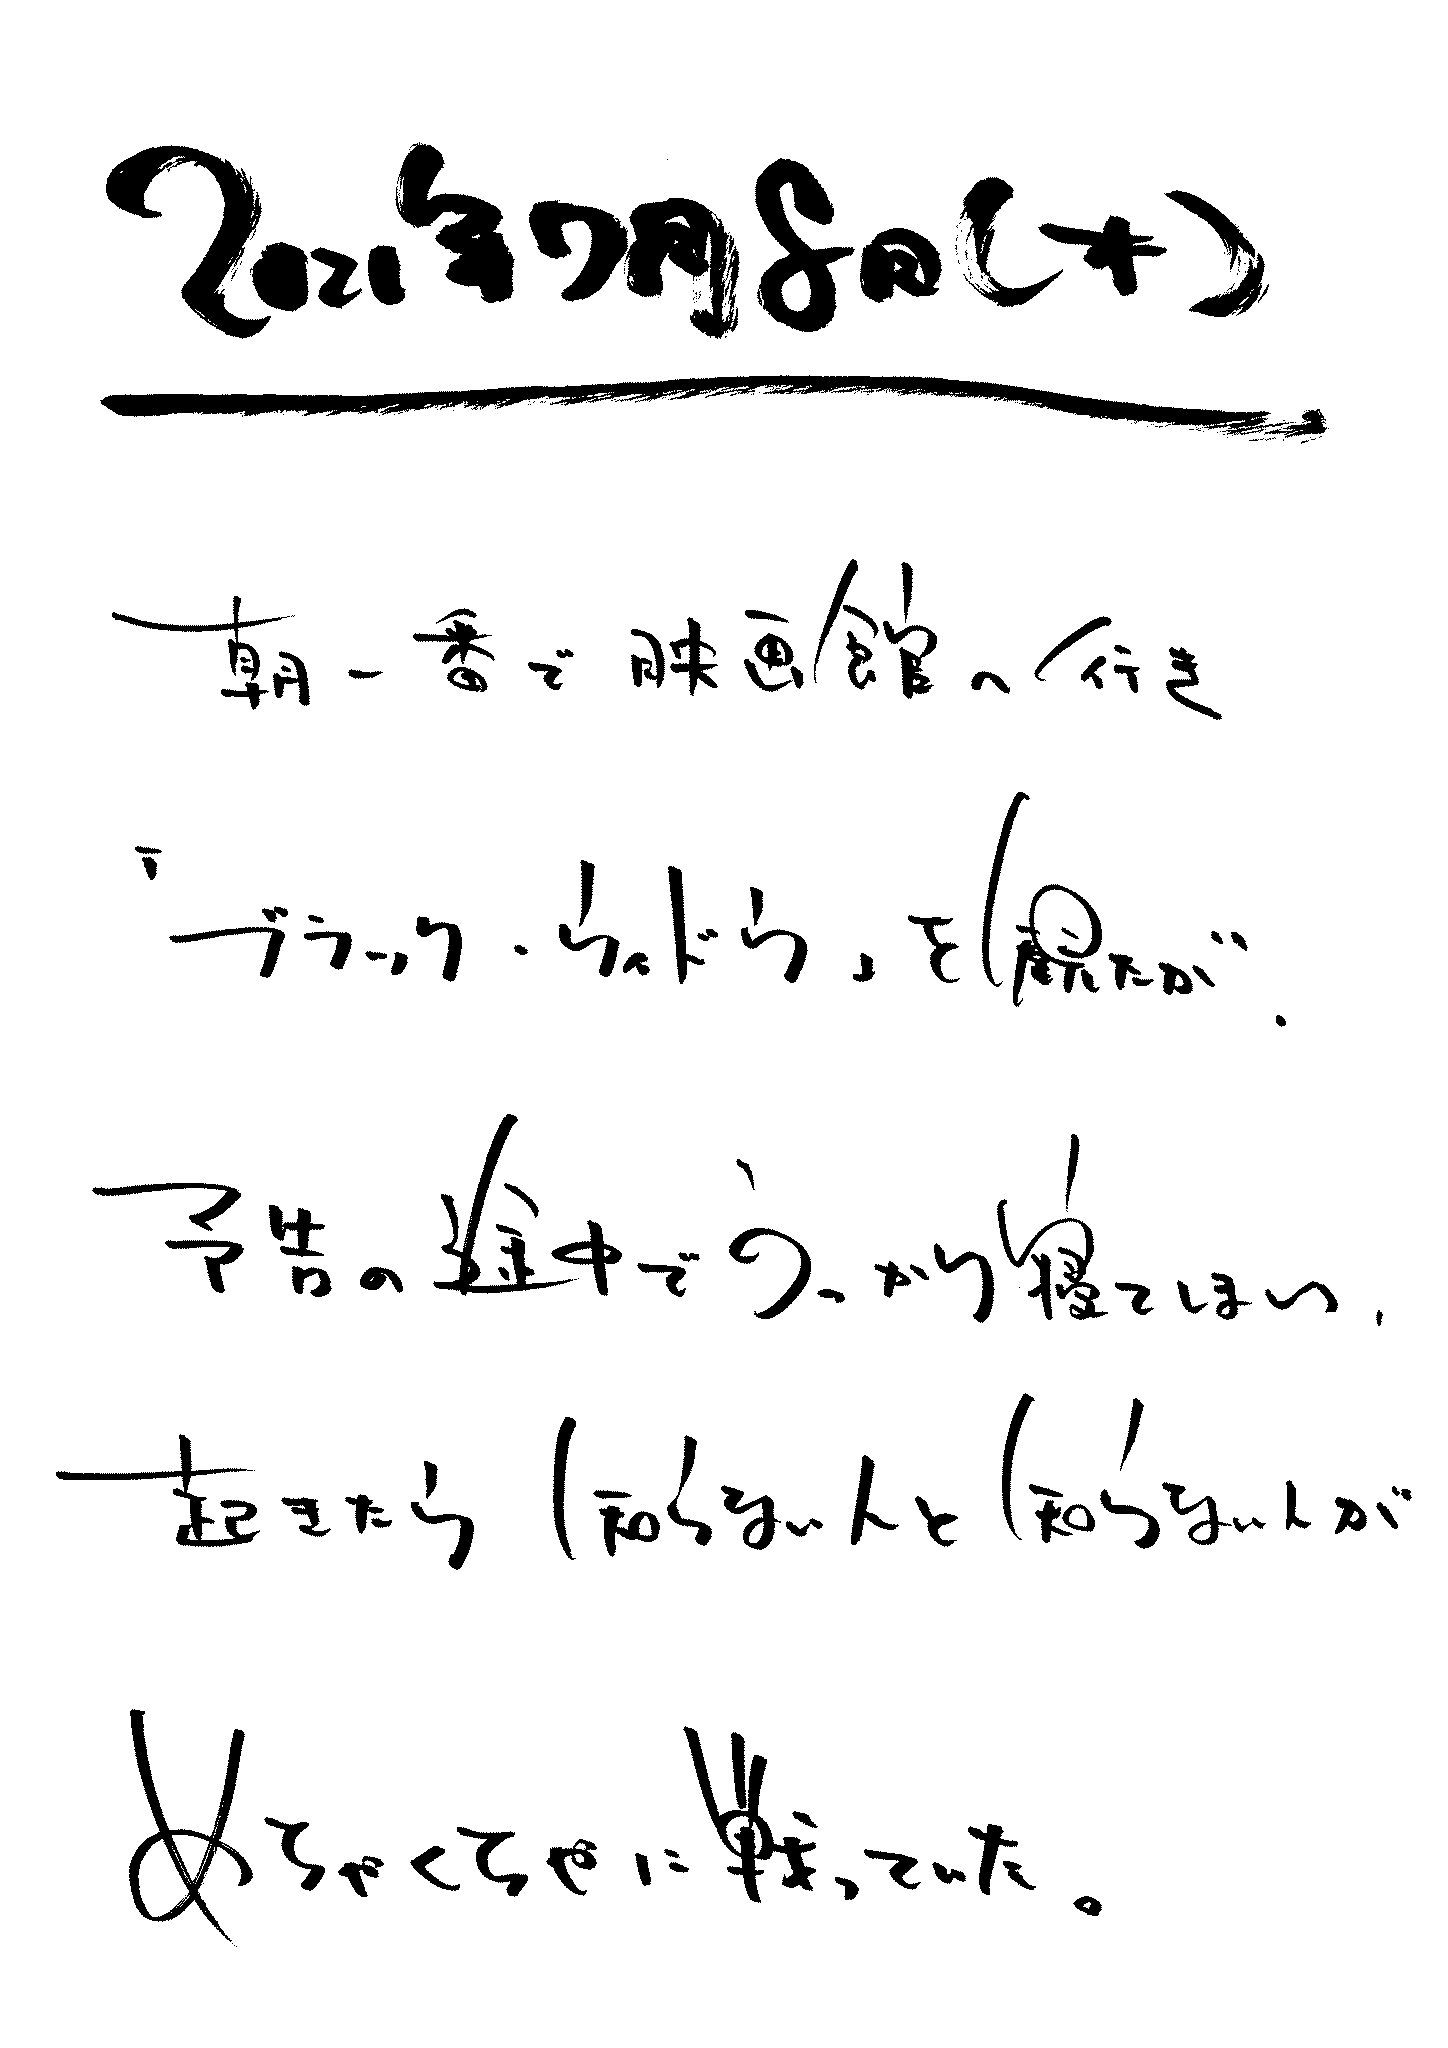 2021年7月8日(木)
朝一番で映画館へ行き
『ブラック・ウィドウ』を観たが、
予告の途中でうっかり寝てしまい、
起きたら知らない人と知らない人が
めちゃくちゃに戦っていた。